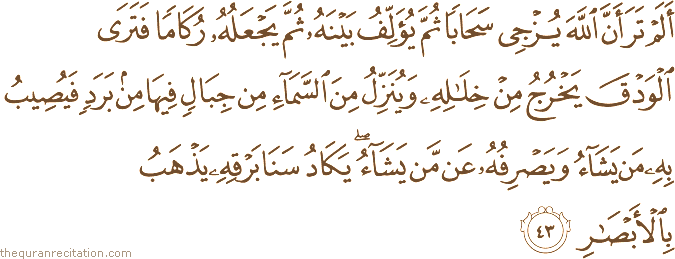 أَلَمْ تَرَ أَنَّ ٱللَّهَ يُزْجِى سَحَابًا ثُمَّ يُؤَلِّفُ بَيْنَهُۥ ثُمَّ يَجْعَلُهُۥ رُكَامًا فَتَرَى
ٱلْوَدْقَ يَخْرُجُ مِنْ خِلَٰلِهِۦ وَيُنَزِّلُ مِنَ ٱلسَّمَآءِ مِن جِبَالٍ فِيهَا مِنۢ بَرَدٍ فَيُصِيبُ
بِهِۦ مَن يَشَآءُ وَيَصْرِفُهُۥ عَن مَّن يَشَآءُ ۖ يَكَادُ سَنَا بَرْقِهِۦ يَذْهَبُ
بِٱلْأَبْصَٰرِ ٤٣
thequranrecitation.com